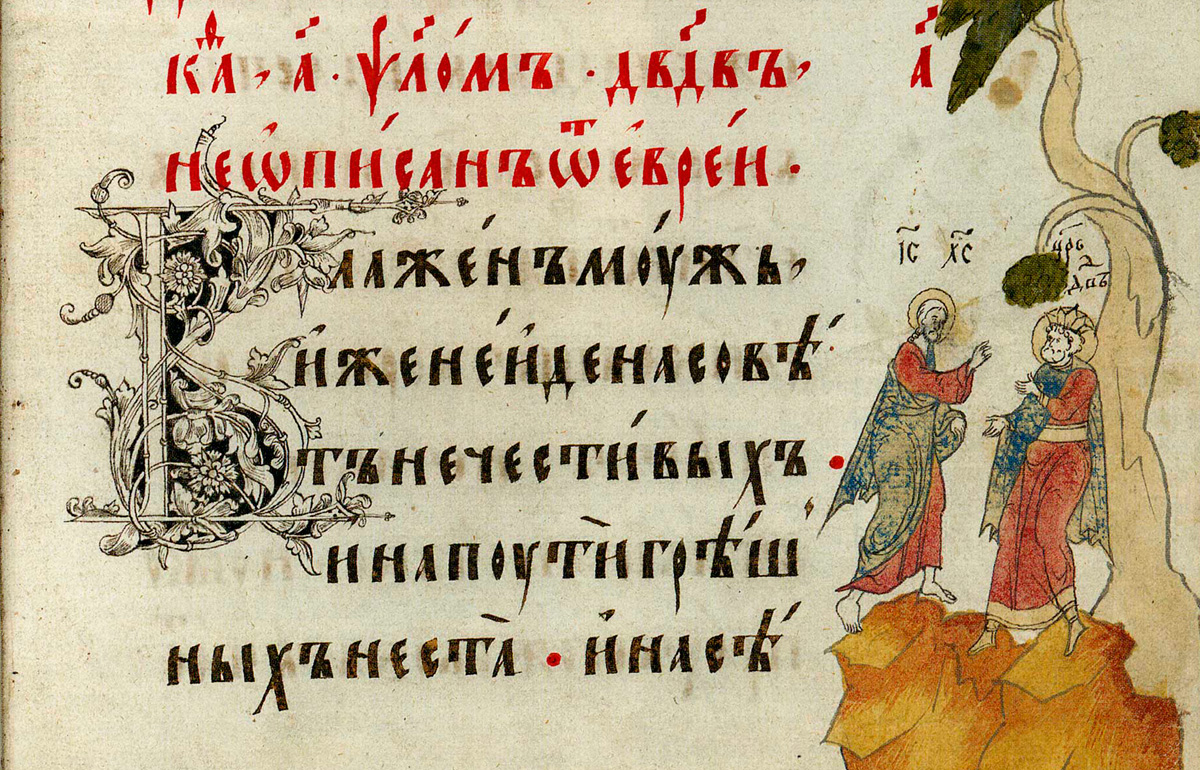 каѳ, а҃ · ѱ҃ло́мъ · дв҃двъ, а҃
неѡпи́санъ ѿ е҆вре́и ·
Блаже́нъ мꙋ́жь,
и҆же не и҆де на совѣ́
тъ нечести́выхъ •
и на поутѝ грѣ́ш
ныхъ не ста̀ • и҆ на сѣ́
і҃с х҃с
цр҃ь
дв҃ъ